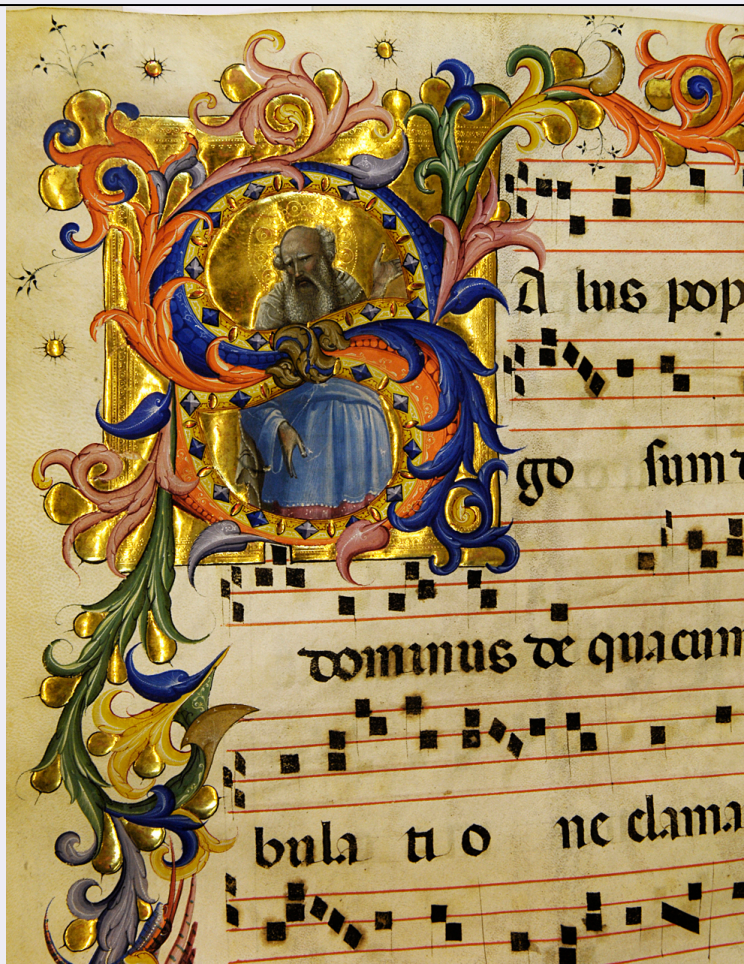 S A lus pop
go sum
dominus de quacum
bula ti o ne clama